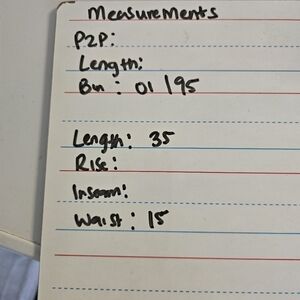 Measurements
P2P:
Length:
Bin: 01/95
Length: 35
Rise:
Inseam:
Waist: 15